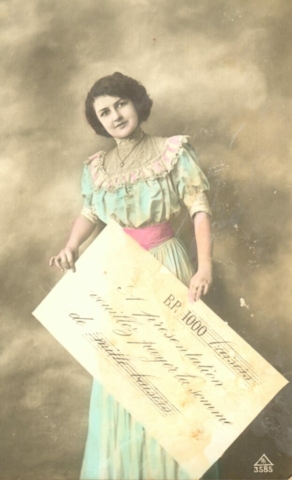 B.P. 1000 baisers
A présentation
veuillez payer la somme
de mille baisers
3585